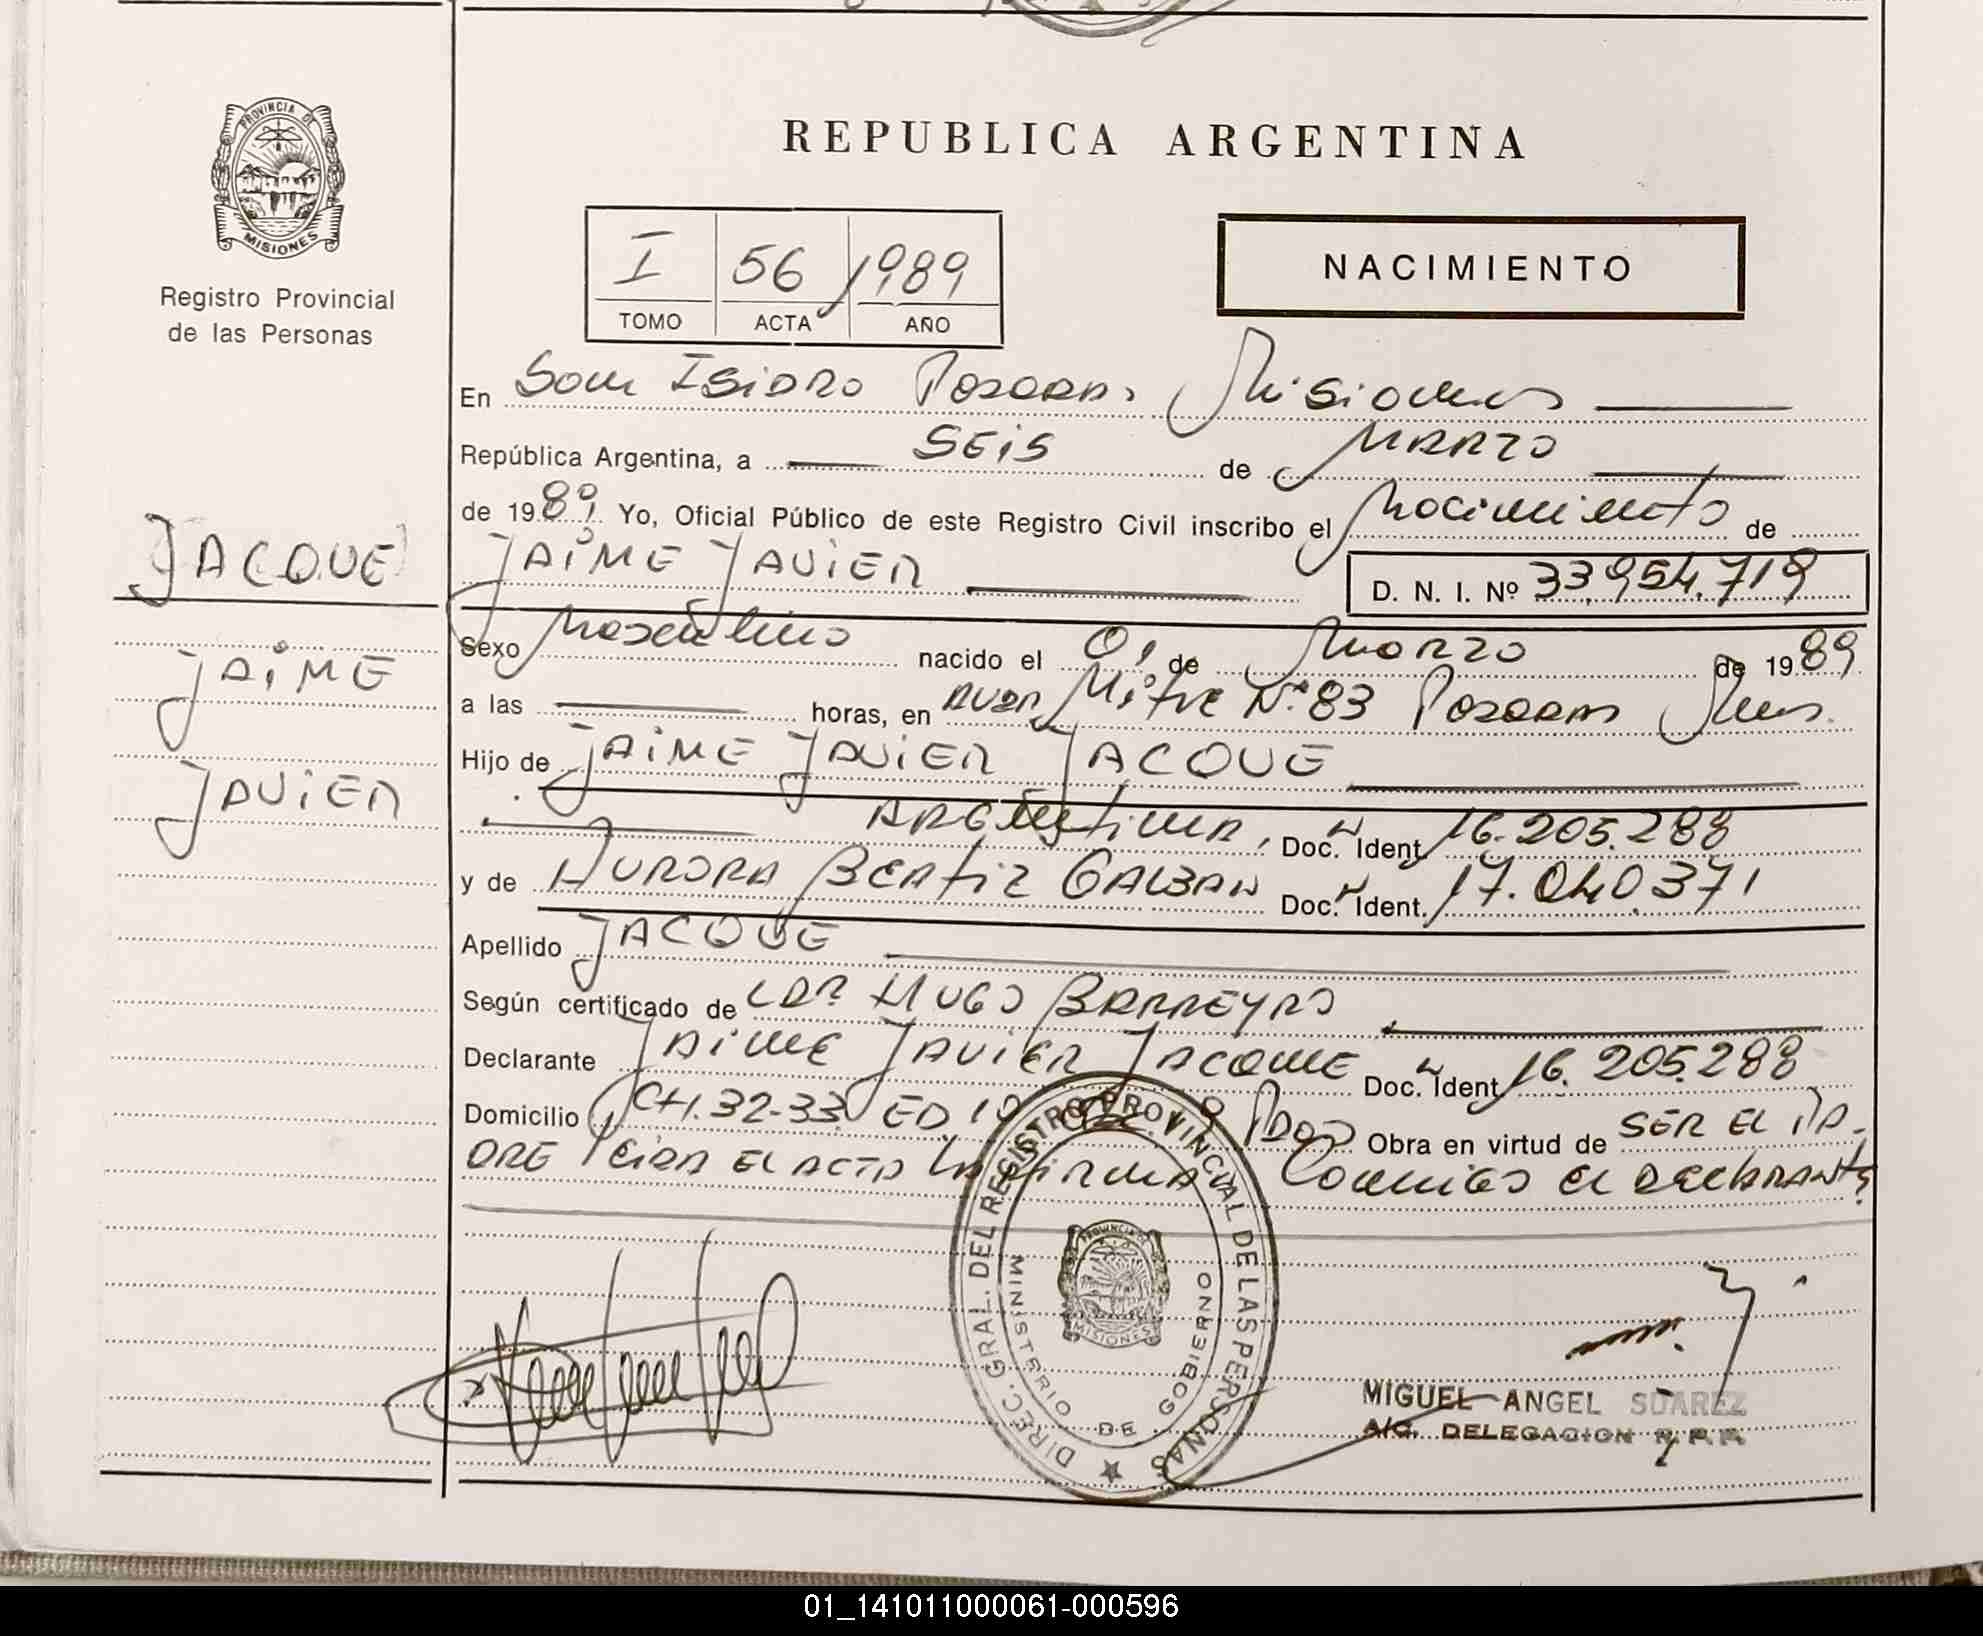 REPUBLICA ARGENTINA
PROVINCIA DE
MISIONES
Registro Provincial
de las Personas
I 56 1989
TOMO ACTA AÑO
NACIMIENTO
En San Isidro Posadas, Misiones
República Argentina, a SEIS de MARZO
de 1989 Yo, Oficial Público de este Registro Civil inscribo el Nacimiento de
JACQUE
JAIME JAVIER
D. N. I. Nº 33.954.719
Sexo Masculino nacido el 01 de Marzo de 1989
JAIME
a las horas, en AVDA Mitre Nº 83 Posadas Mnes.
Hijo de JAIME JAVIER JACQUE
JAVIER
ARGENTINA, Doc. Ident. 16.205.288
y de AURORA BEATIZ GALBAN Doc. Ident. 17.040.371
Apellido JACQUE
Según certificado de LDR HUGO BARREYRO
Declarante JAIME JAVIER JACQUE Doc. Ident. 16.205.288
Domicilio CH. 32-33 ED. 19 Obra en virtud de SER EL PA-
DRE Leida EL ACTA LA FIRMA Conmigo el DECLARANTE
DIREC. GRAL. DEL REGISTRO PROVINCIAL DE LAS PERSONAS
MINISTERIO DE GOBIERNO
PROVINCIA DE
MISIONES
MIGUEL ANGEL SUAREZ
A/C. DELEGACION R. P. P.
01_141011000061-000596